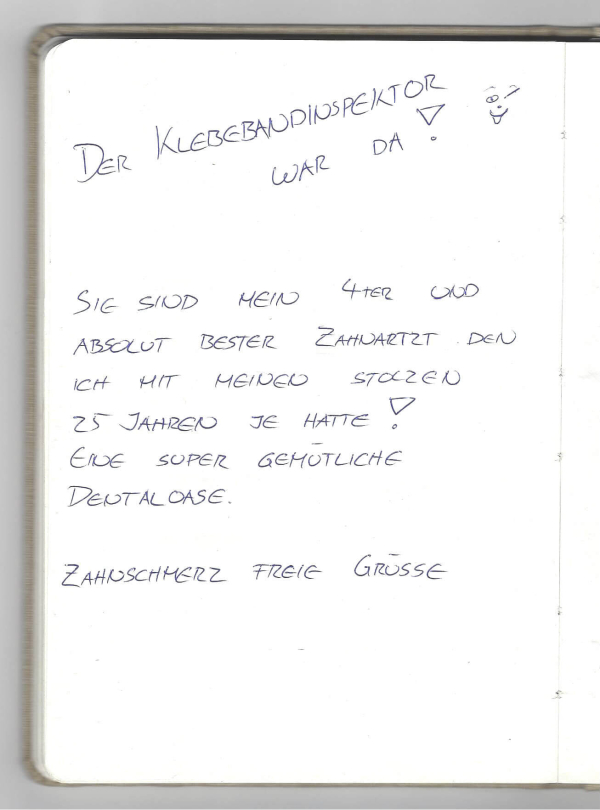 DER KLEBEBANDINSPEKTOR
WAR DA!
SIE SIND MEIN 4TER UND
ABSOLUT BESTER ZAHNARTZT DEN
ICH MIT MEINEN STOLZEN
25 JAHREN JE HATTE!
EINE SUPER GEMÜTLICHE
DENTALOASE.
ZAHNSCHMERZ FREIE GRÜSSE